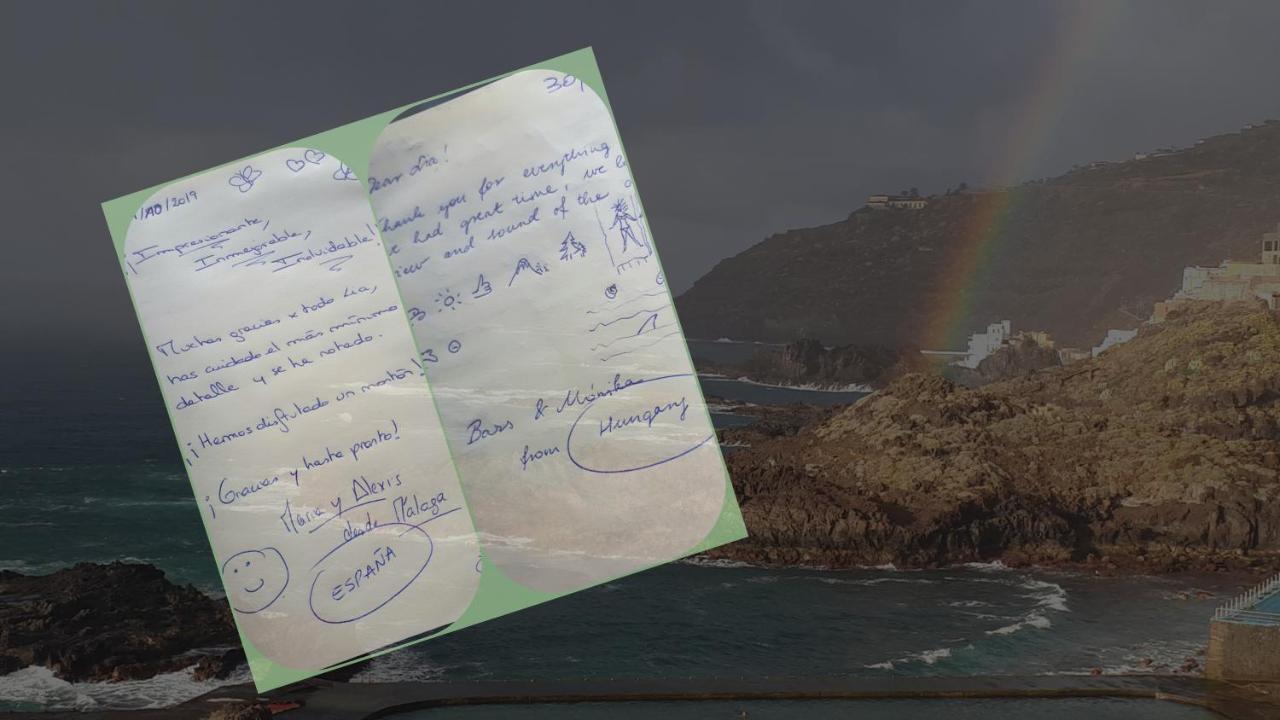 /10/2019
¡Impresionante,
Inmejorable,
Inolvidable!
Muchas gracias x todo Lia,
has cuidado el más mínimo
detalle y se ha notado.
¡¡Hemos disfrutado un montón!
¡Gracias y hasta pronto!
María y Alexis
desde Malaga
ESPAÑA
30
Dear Lia!
Thank you for everything
had great time! we
and sound of the
& Mónika
from Hungary